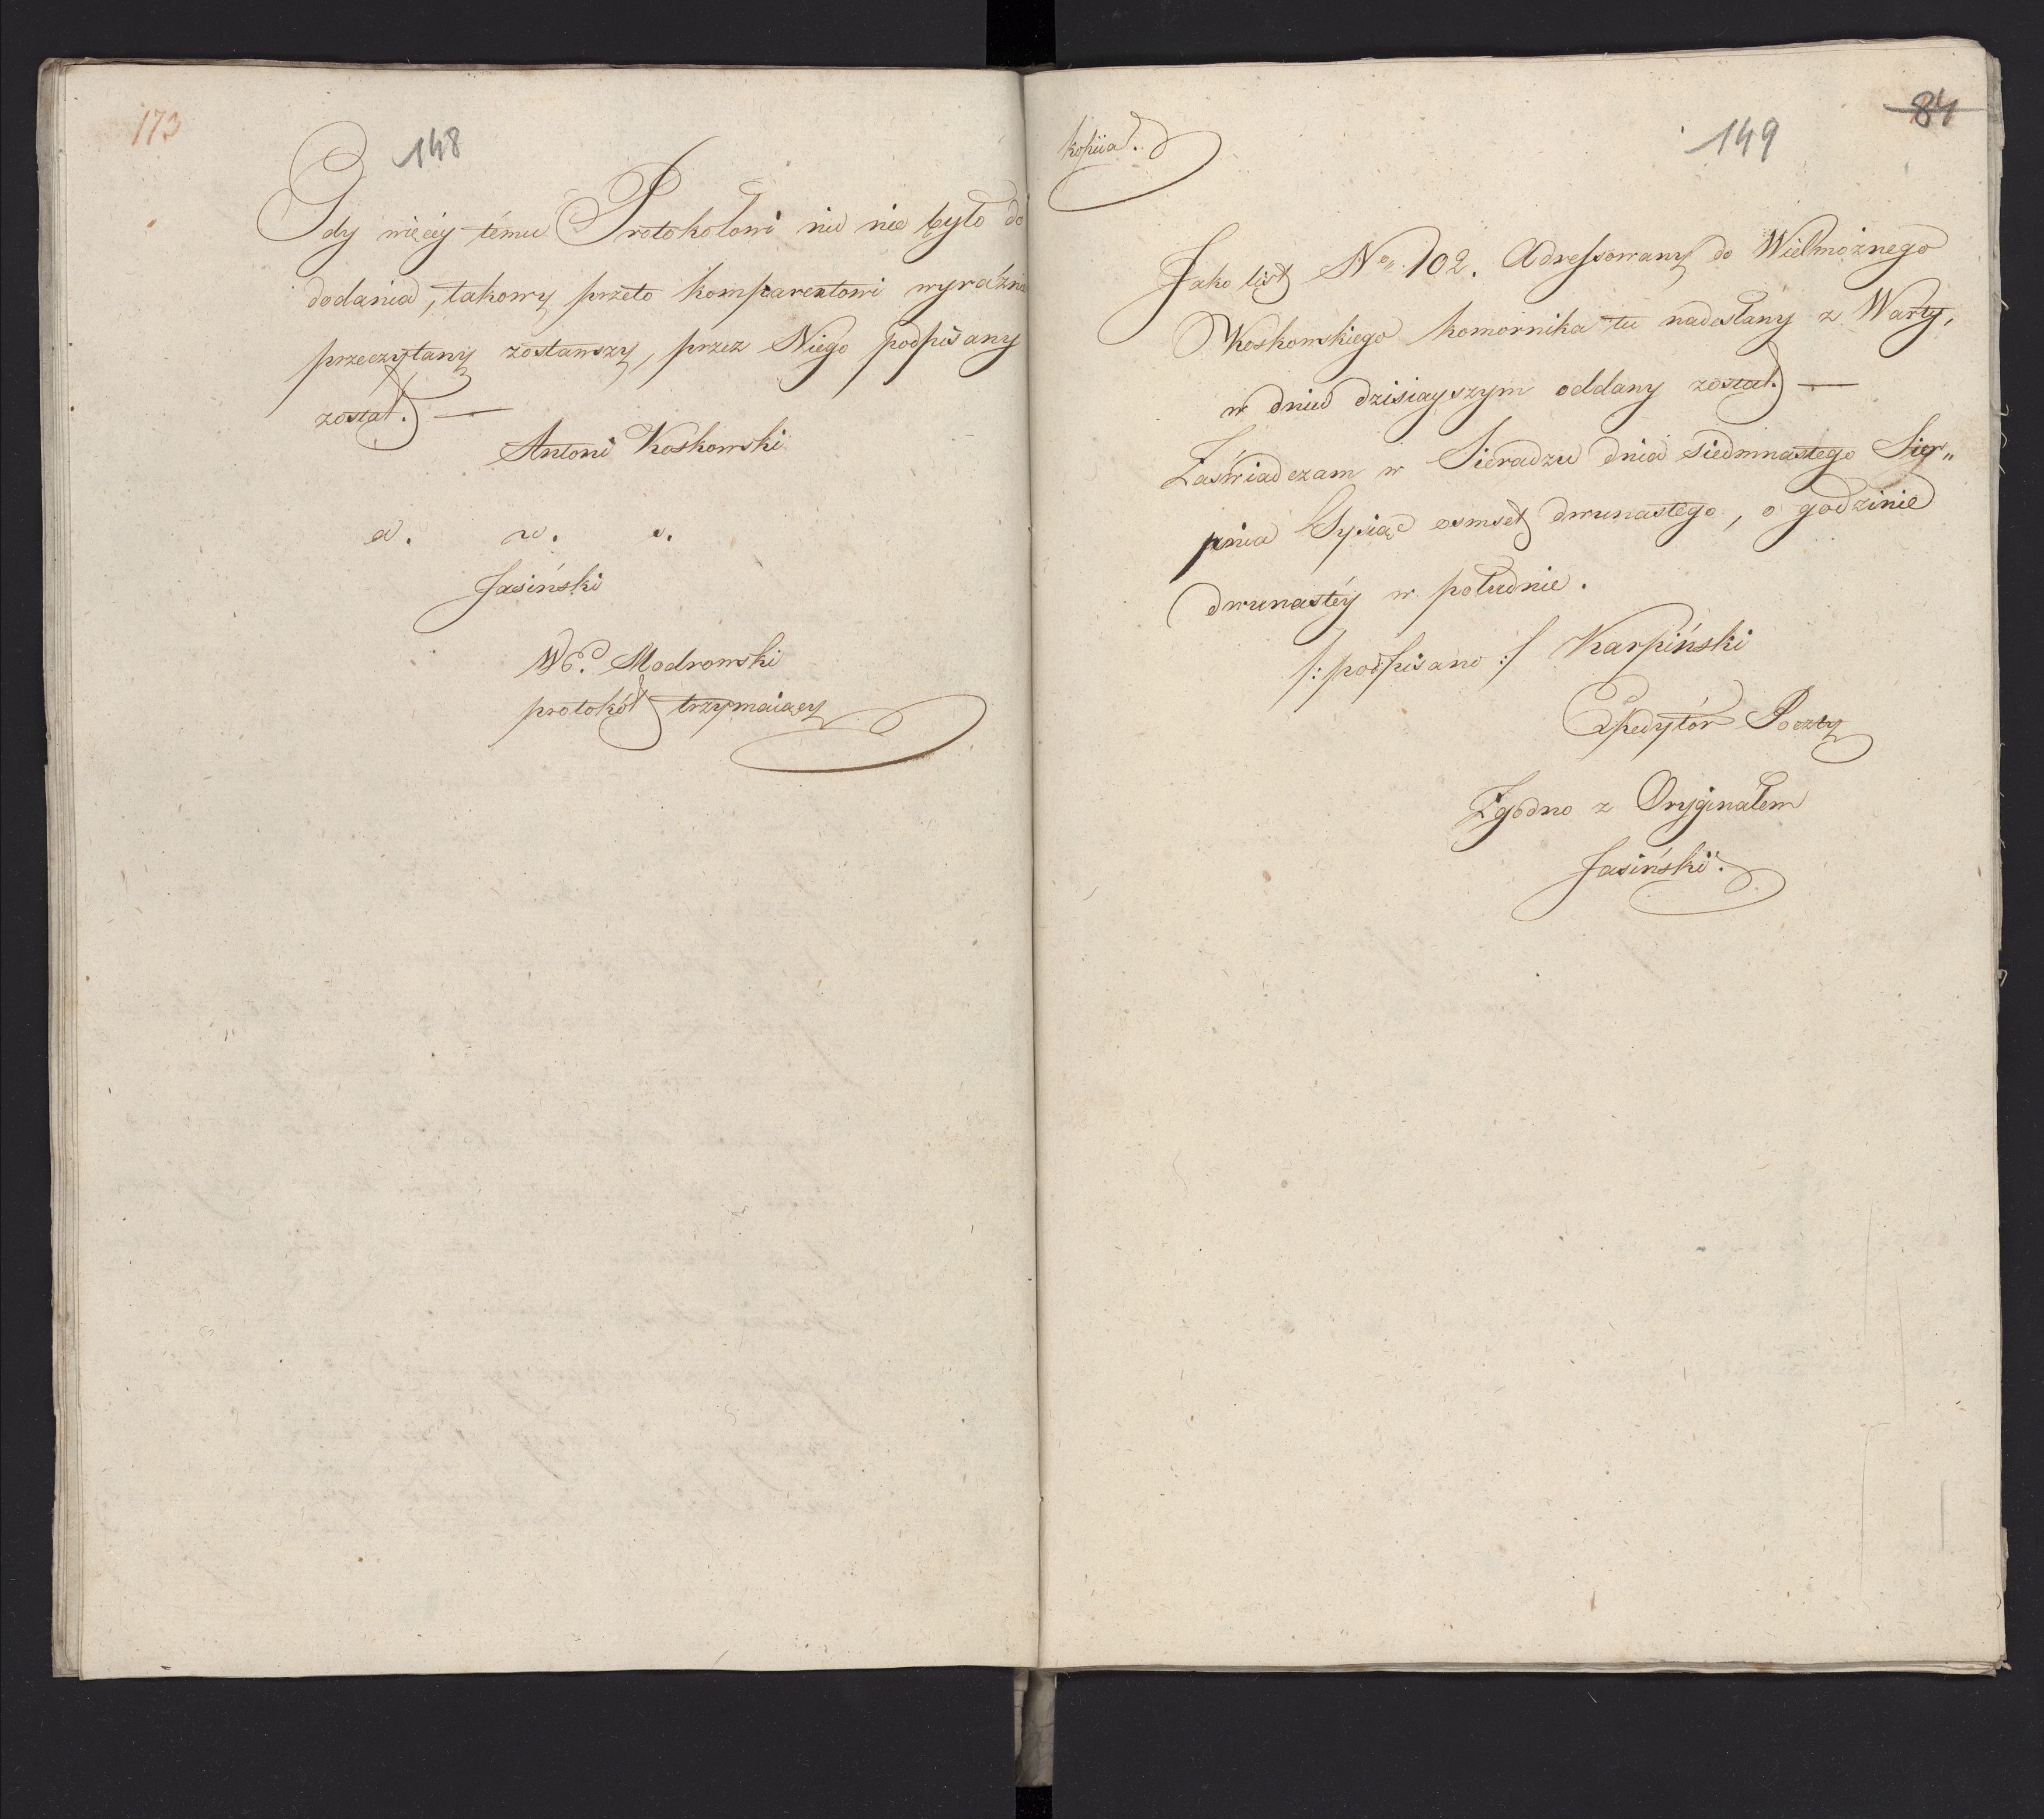 173
148
Gdy więcéy tému Protokołowi nic nie było do
dodania, takowy przeto komparentowi wyraźnie
przeczytany zostawszy, przez Niego podpisany
został. —
Antoni Koskowski
a. w. s.
Jasiński
Modrowski
protokół trzymaiący
kopiia.
149
84
Jako list No 102. Adressowany do Wielmożnego
Koskowskiego komornika tu nadesłany z Warty,
w dniu dzisiayszym oddany został. —
Zaświadczam w Sieradzu dnia siedmnastego Sier„
pnia Tysiąc osmset dwunastego, o godzinie
dwunastéy w południe.
/: podpisano :/ Karpiński
Expedytór Poczty
Zgodno z Oryginałem
Jasiński.